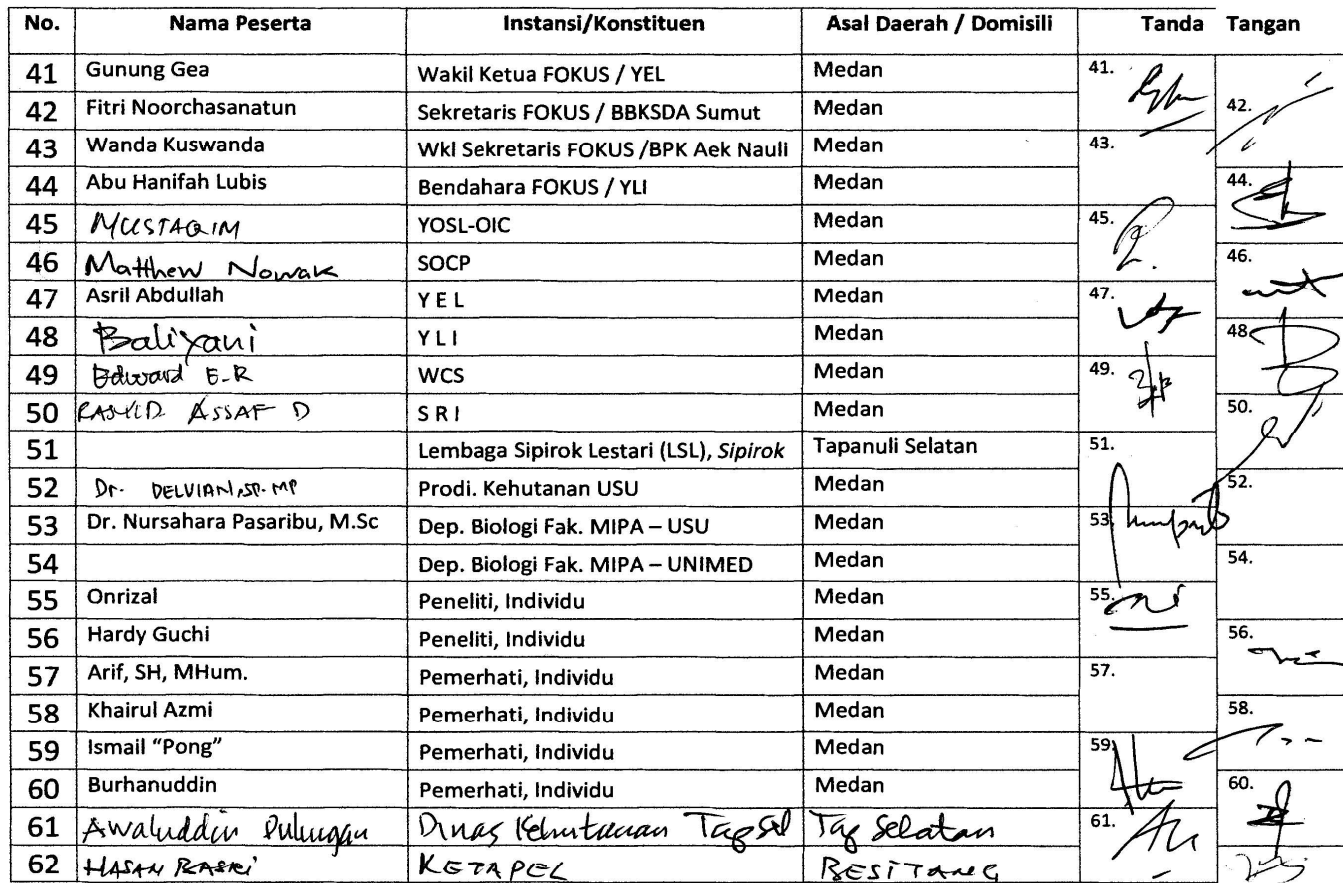 No. Nama Peserta Instansi/Konstituen Asal Daerah / Domisili Tanda Tangan
41 Gunung Gea Wakil Ketua FOKUS / YEL Medan 41.
42 Fitri Noorchasanatun Sekretaris FOKUS / BBKSDA Sumut Medan 42.
43 Wanda Kuswanda Wkl Sekretaris FOKUS /BPK Aek Nauli Medan 43.
44 Abu Hanifah Lubis Bendahara FOKUS / YLI Medan 44.
45 MUSTAQIM YOSL-OIC Medan 45.
46 Matthew Nowak SOCP Medan 46.
47 Asril Abdullah Y E L Medan 47.
48 Baliyani Y L I Medan 48
49 Edward E.R WCS Medan 49.
50 ASSAF D S R I Medan 50.
51 Lembaga Sipirok Lestari (LSL), Sipirok Tapanuli Selatan 51.
52 Dr. DELVIAN, SP. MP Prodi. Kehutanan USU Medan 52.
53 Dr. Nursahara Pasaribu, M.Sc Dep. Biologi Fak. MIPA – USU Medan 53
54 Dep. Biologi Fak. MIPA – UNIMED Medan 54.
55 Onrizal Peneliti, Individu Medan 55.
56 Hardy Guchi Peneliti, Individu Medan 56.
57 Arif, SH, MHum. Pemerhati, Individu Medan 57.
58 Khairul Azmi Pemerhati, Individu Medan 58.
59 Ismail "Pong" Pemerhati, Individu Medan 59
60 Burhanuddin Pemerhati, Individu Medan 60.
61 Awaluddin Pulungan Dinas Kehutanan Tapsel Tap Selatan 61.
62 HASAN BASRI KETAPEL BESITANG